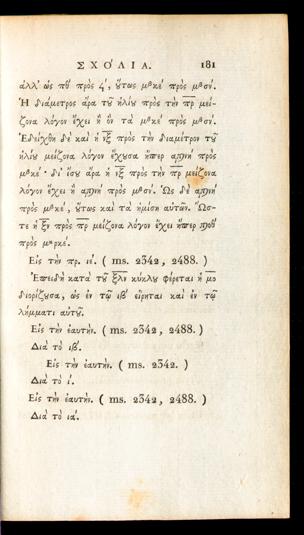 ΣΧΟΛΙΑ. 181
ἀλλ' ὡς πθ πρὸς ϟ', ὕτως μακέ πρὸς μασύ.
Ἡ διάμετρος ἄρα τῦ ἡλίυ πρὸς τὴν πρ μεί-
ζονα λόγον ἔχει ἢ ὃν τὰ μακέ πρὸς μασύ.
Ἐδείχθη δὲ καὶ ἡ νξ πρὸς τὴν διάμετρον τῦ
ἡλίυ μείζονα λόγον ἔχυσα ἤπερ
πρὸς
μακέ· δι' ἴσυ ἄρα ἡ νξ πρὸς τὴν πρ μείζονα
λόγον ἔχει ἢ
πρὸς μασύ. Ὡς δὲ
πρὸς μακέ, ὕτως καὶ τὰ ἡμίση αὐτῶν. Ὥσ-
τε ἡ ξν πρὸς πρ μείζονα λόγον ἔχει ἤπερ
πρὸς
Εἰς τὴν πρ. ιέ. ( ms. 2342, 2488. )
Ἐπειδὴ κατὰ τῦ ξλν κύκλυ φέρεται ἡ μο
διορίζυσα, ὡς ἐν τῷ ιβ' εἴρηται καὶ ἐν τῷ
λήμματι αὐτῦ.
Εἰς τὴν ἑαυτήν. ( ms. 2342, 2488. )
Διὰ τὸ ιβ'.
Εἰς τὴν ἑαυτήν. ( ms. 2342. )
Διὰ τὸ ί.
Εἰς τὴν ἑαυτήν. ( ms. 2342, 2488. )
Διὰ τὸ ιά.